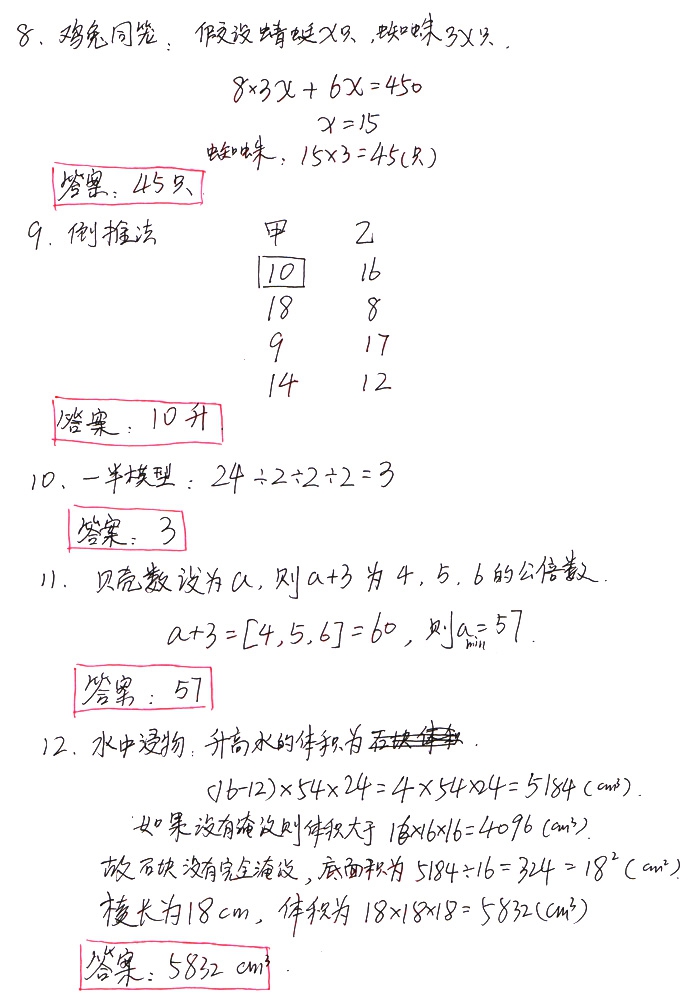 8. 鸡兔同笼: 假设蜻蜓x只,蜘蛛3x只.
8×3x+6x=450
x=15
蜘蛛: 15×3=45(只)
答案: 45只
9. 倒推法 甲 乙
10 16
18 8
9 17
14 12
答案: 10升
10. 一半模型: 24÷2÷2÷2=3
答案: 3
11. 贝壳数设为a,则a+3为4,5,6的公倍数.
a+3=[4,5,6]=60,则a min=57.
答案: 57
12. 水中浸物: 升高水的体积为
(16-12)×54×24=4×54×24=5184(cm³).
如果没有淹没则体积大于16×16×16=4096(cm³).
故石块没有完全淹没,底面积为5184÷16=324=18²(cm²)
棱长为18cm,体积为18×18×18=5832(cm³)
答案: 5832 cm³.